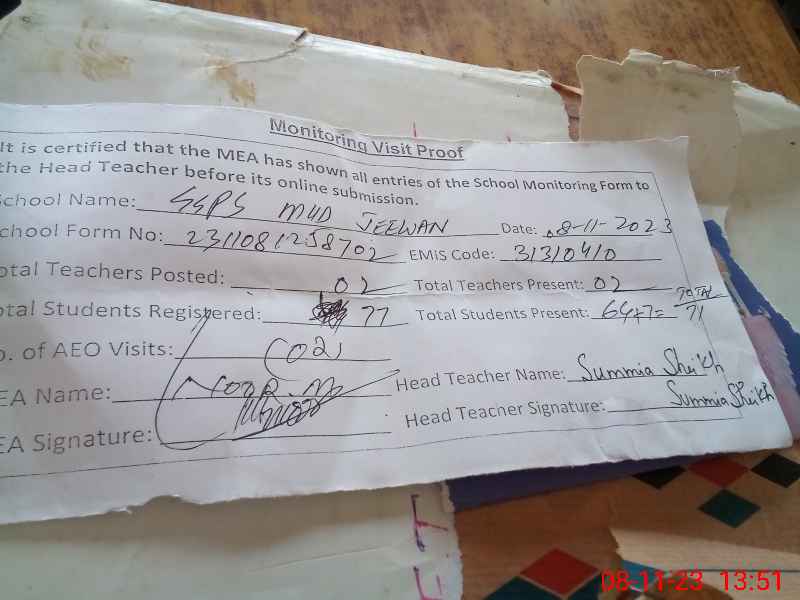 Monitoring Visit Proof
It is certified that the MEA has shown all entries of the School Monitoring Form to
the Head Teacher before its online submission.
School Name: SSPS MUD JEEWAN Date: 08-11-2023
chool Form No: 2311081258702 EMIS Code: 31310410
otal Teachers Posted: 02 Total Teachers Present: 02
otal Students Registered: 77 Total Students Present: 64+7= TOTAL 71
o. of AEO Visits: (02)
EA Name: Noor. M Head Teacher Name: Summia Sheikh
EA Signature: Head Teacher Signature: Summia Sheikh
08-11-23 13:51